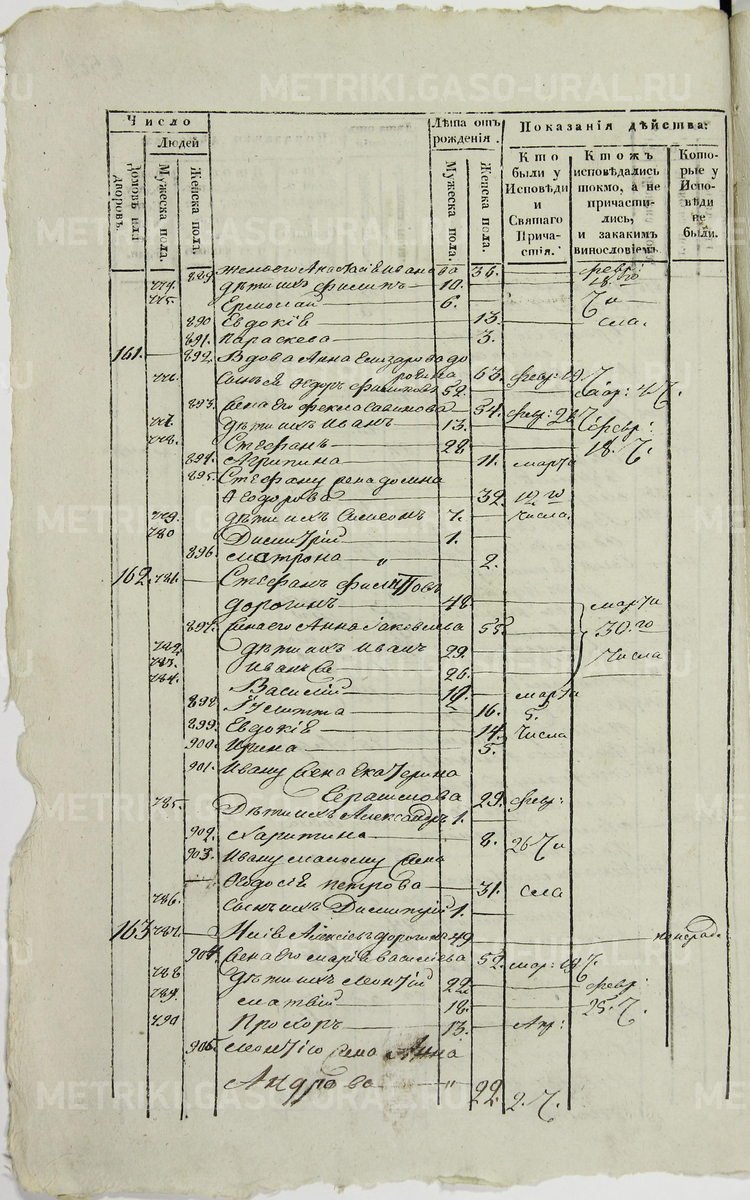 METRIKI.GASO-URAL.RU
Число
Людей
Домовъ или дворовъ.
Мужеска пола.
Женска пола.
Лѣта отъ рожденія.
Мужеска пола.
Женска пола.
Показанія дѣйства:
Кто были у Исповѣди и Святаго Причастія.
Ктожъ исповѣдались токмо, а не причастились, и закакимъ винословіемъ.
Которые у Исповѣди не были.
889. жена его Анастасія Иванова 36. февр:
774. дѣти ихъ Филипъ 10. 18.го
775. Ермолай 6. Чи
890 Евдокія 13. сла.
891. Параскева 3.
161. 892. Вдова Анна Елизарова до
рогина 63. февр: 19 Ч.
776. сынъ ея Ѳедоръ Филиповъ 52.
893. жена его Фекла Савинова 54. февр:
777. дѣти ихъ Иванъ 13. февр:
778. Стефанъ 28 18. Ч.
894. Агрипина 11. марта
895. Стефану жена домна
Ѳеодорова 32. 10 го
779. дѣти ихъ Симеонъ 7. числа.
780 Димитрій 1.
896 Матрона " 2.
162. 781. Стефанъ Филиповъ
дорогинъ 48 марта
897. жена его Анна Яковлева 55. 30.го
782. дѣти ихъ Иванъ 29. числа
783. Иванъ 26.
784. Василій 19. марта
898 Іулитта 16. 5.
899. Евдокія 14. числа
900. Ирина 5.
901. Ивану жена Екатерина
Герасимова 29. февр:
785. Дѣти ихъ Александръ 1.
902. Харитина 8. 26 Чи
903. Ивану малому жена
Ѳеодосія Петрова 31. сла
786. сынъ ихъ Димитрій 1.
163 787. Алексѣевъ дорогинъ 49
904. жена его Марія Василіева 52. мар: 19 Ч.
788 дѣти ихъ Леонтій 22. февр:
789. Матвій 18. 25. Ч.
790 Прохоръ 13. Апр:
905. Леонтію жена Анна
Андрова " 22. 2. Ч.